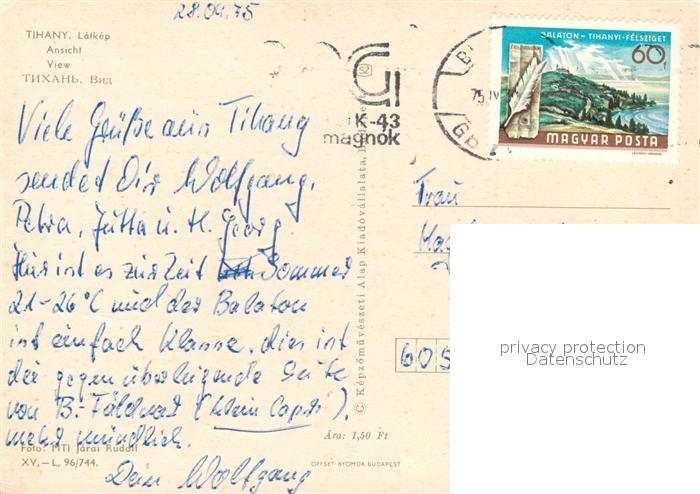 28.04.75
TIHANY. Látkép
Ansicht
View
ТИХАНЬ. Вид
Viele Grüße aus Tihany
sendet Dir Wolfgang,
Petra, Jutta u. H. Georg
Hier ist es zur Zeit Sommer
21-26°C und der Balaton
ist einfach Klasse, dies ist
die gegenüberliegende Seite
von B.-Földvar (klein Capri).
mehr mündlich.
Dein Wolfgang
Foto: MTI Járai Rudolf
XV.—L. 96/744.
© Képzőművészeti Alap Kiadóvállalata,
Ára: 1,50 Ft
OFFSET-NYOMDA, BUDAPEST
K-43
magnók
75. IV
BALATON - TIHANYI-FÉLSZIGET
60
MAGYAR POSTA
Frau
605
privacy protection
Datenschutz